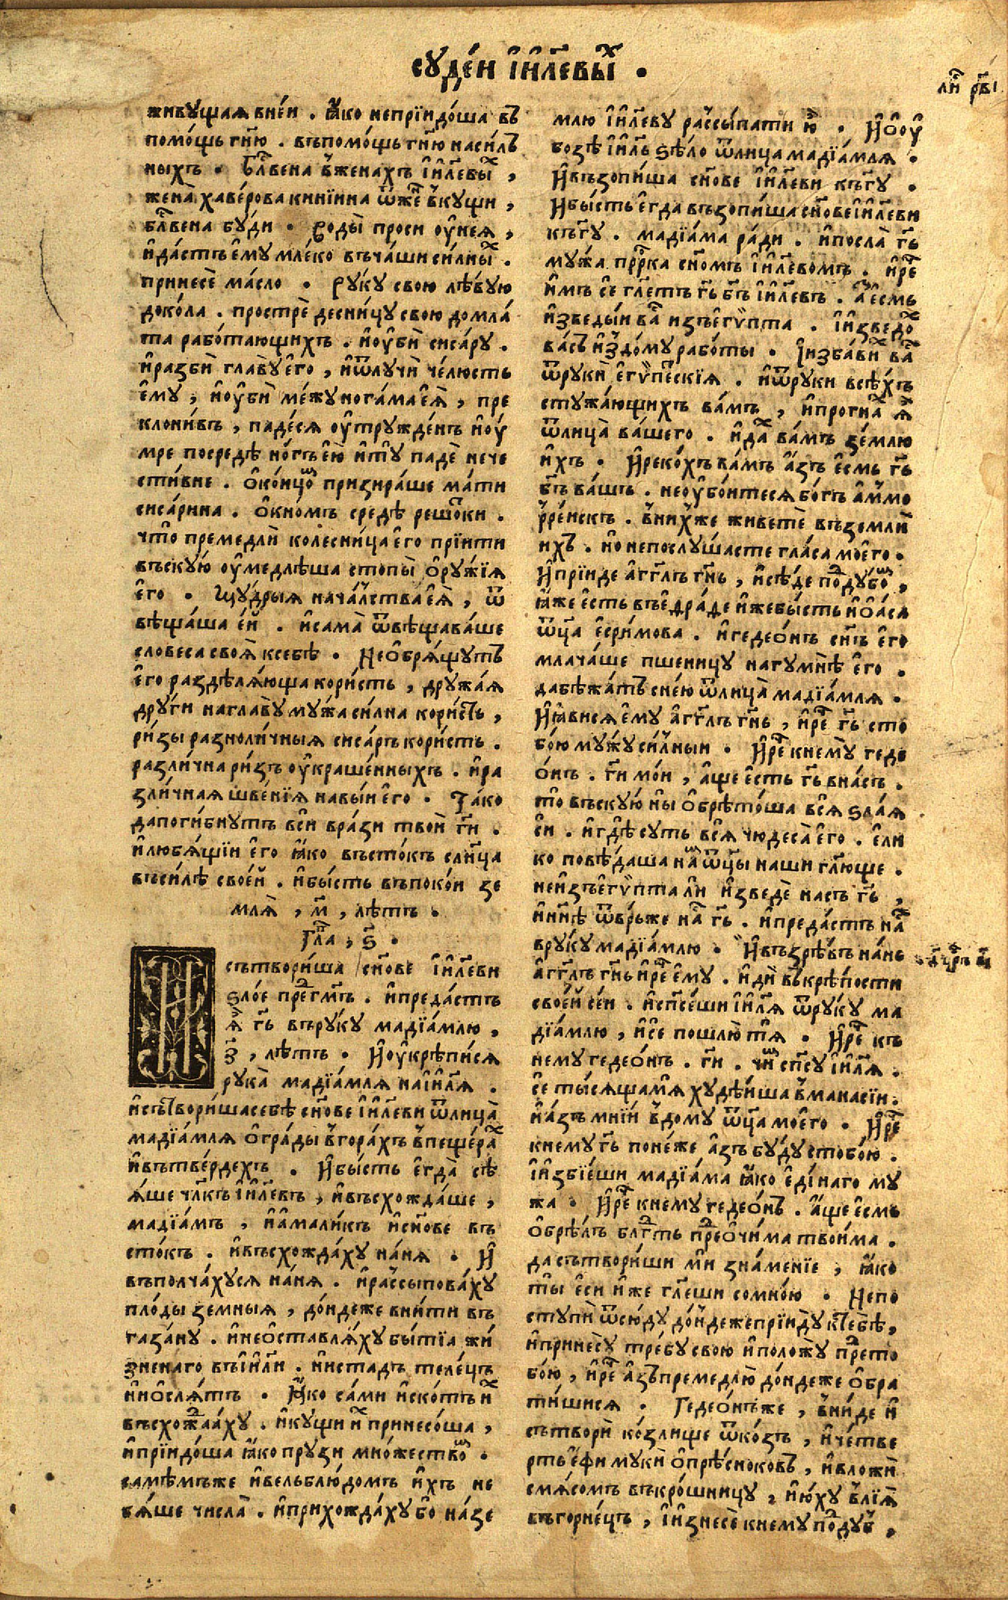 сꙋде́й і҆и҆л҃евы́х .
ли҃ рв҃і
живꙋщаѧ вне́и . ꙗ҆́ко неприидо́ша въ
по́мощь гн҃ю . въпомо́щь гн҃ю наси́ль
ныхъ . бл҃ве́на вженахъ і҆и҆л҃евы́х ,
жена̀ хаве́рова кинїина ѿже́н вкꙋщи ,
бл҃ве́на бꙋ́ди . воды̀ проси ᲂу҆нея̀ ,
и҆да́стъ е҆мꙋ мле́ко въча́ши си́лных .
принесѐ ма́сло . рꙋкꙋ свою лѣ́вꙋю
доко́ла . прострѐ десни́цꙋ свою домла́
та рабо́тающихъ . и҆ᲂу҆бѝ сиса́рꙋ .
и҆разбѝ главꙋ̀ е҆го , и҆ѿлꙋчѝ че́люсть
е҆мꙋ , и҆ᲂу҆бѝ ме́жꙋ нога́ма е҆ѧ̀ , пре
клони́въ , паде́сѧ ᲂу҆трꙋжде́нъ и҆ᲂу҆
мре посредѣ̀ но́гъ е҆ю̀ и҆тꙋ̀ падѐ нече
сти́вне . ѻ҆ко́нцѡм призира́ше ма́ти
сиса́рина . ѻ҆кно́мъ средѣ̀ решо́тки .
что̀ премедлѝ колесни́ца е҆го прїи́ти
въскꙋ́ю ᲂу҆ме́длѣша стопы̀ ѻ҆рꙋ́жїѧ
е҆го . мꙋ́дрыѧ нача́лства е҆ѧ̀ , ѿ
вѣща́ша е҆́й . и҆сама̀ ѿвѣщава́ше
словеса̀ своѧ̀ ксебѣ̀ . не ѻ҆брѧ́щꙋтъ
е҆го раздѣлѧ́юща кори́сть , дрꙋжа́ѧ
дрꙋ́ги наглавꙋ̀ мꙋ́жа си́лна кори́сть ,
ри́зы разноли́чныѧ сиса́ръ кори́сть .
разли́чна ри́зъ ᲂу҆краше́нныхъ . и҆ра
зли́чнаѧ шве́нїѧ навы́и е҆го . та́ко
дапоги́бнꙋтъ всѝ вра́зи твоѝ гд҃и .
и҆любѧ́щїи е҆го ꙗ҆́ко въсто́къ сл҃нца
въси́лѣ свое́й . и҆бы́сть въпоко́и зе
млѧ̀ , м҃ , лѣ́тъ .
гла , ѕ҃ .
И сътвори́ша сн҃ове і҆и҆л҃еви
ѕло́е пре́дгм҃ъ . и҆преда́стъ
ѧ҆̀ гд҃ь врꙋ́кꙋ мадїа́млю ,
з҃ , лѣ́тъ . и҆ᲂу҆крѣпи́сѧ
рꙋка̀ мадїа́млѧ наі҆и҆л҃ѧ .
и҆сътвори́шасебѣ̀ сн҃ове і҆и҆л҃еви ѿлица̀
мадїа́млѧ ѻ҆гра́ды вгора́хъ впеще́рах
и҆втве́рдехъ . и҆бы́сть е҆гда̀ сѣ́
ѧше чл҃къ і҆и҆л҃евъ , и҆въсхожда́ше ,
мадїа́мъ , и҆а҆мали́къ и҆сн҃ове въ
сто́къ . и҆въсхожда́хꙋ на́нѧ . и҆
въполча́хꙋсѧ на́нѧ . и҆разсыпова́хꙋ
плоды̀ земныѧ , до́ндеже вни́ти въ
газа́нꙋ . и҆неѻ҆ставлѧ́хꙋ бы́тїа жи́
зненаго въі҆и҆л҃и . и҆нистадъ теле́цъ
и҆нѻ҆слѧ́тъ . ꙗ҆́ко са́ми и҆ско́тъ и҆х
въсхожда́ахꙋ . и҆кꙋщи и҆х принесо́ша ,
и҆прїидо́ша ꙗ҆́ко прꙋ́зи мно́жествѡм .
саме́мъже и҆вельблю́домъ и҆́хъ не
бѧ́ше числа̀ . и҆прихожда́хꙋ бо на́зе
млю і҆и҆л҃евꙋ разсы́пати ю҆̀ . и҆ѻ҆ᲂу҆
бозѣ̀ і҆и҆л҃ь ѕѣло̀ ѿлица мадїа́млѧ .
и҆възопи́ша сн҃ове і҆и҆л҃еви къгд҃ꙋ .
и҆бы́сть е҆гда̀ възопи́ша сн҃ове і҆и҆л҃еви
къгд҃ꙋ . мадїа́ма ра́ди . и҆посла̀ гд҃ь
мꙋ́жа прⷪ҇рка сн҃омъ і҆и҆л҃евомъ . и҆рече
и҆́мъ се гл҃етъ гд҃ь бг҃ъ і҆и҆л҃евъ . а҆́зъ е҆смь
и҆зведы́и ва́с изъе҆гѵ́пта . і҆и҆зведо́х
ва́съ и҆здо́мꙋ рабо́ты . і҆и҆зба́вих ва́с
ѿрꙋкѝ е҆гѵ́петскїѧ . и҆ѿрꙋки всѣ́хъ
стꙋжа́ющихъ ва́мъ , и҆прогна́х ѧ҆̀
ѿлица̀ ва́шего . и҆да́х ва́мъ зе́млю
и҆́хъ . и҆реко́хъ ва́мъ а҆́зъ е҆смь гд҃ь
бг҃ъ ва́шъ . неᲂу҆бо́итесѧ бо́гъ а҆ммо
рре́искъ . вни́хже живетѐ въземлѝ
и҆хъ . и҆ непослꙋ́шасте гла́са мое́го .
и҆прїи́де а҆гг҃лъ гн҃ь , и҆сѣ́де поддꙋ́бом ,
ꙗ҆́же е҆́сть въе҆дра́де и҆жебы́сть и҆ѻ҆а́са
ѿца̀ е҆зри́мова . и҆гедео́нъ сн҃ъ е҆го
млача́ше пшени́цꙋ нагꙋмнѣ̀ е҆го .
дабѣжа́тъ сне́ю ѿлица̀ мадїа́млѧ .
и҆ꙗ҆ви́сѧ е҆мꙋ а҆гг҃лъ гн҃ь , и҆рече гд҃ь сто
бо́ю мꙋ́жꙋ си́лныи . и҆рече кнемꙋ̀ геде
ѻ҆́нъ . гд҃и мо́и , а҆́ще е҆́сть гд҃ь вна́съ .
то̀ въскꙋ́ю ны ѻ҆брѣто́ша всѧ ѕла́ѧ
сѝ . и҆гдѣ̀ сꙋть всѧ чюдеса̀ е҆го . е҆ли́
ко повѣ́даша на́м ѿцы̀ на́ши гл҃юще .
неи҆зъе҆гѵ́пта ли и҆зведѐ на́съ гд҃ь ,
и҆нн҃ѣ ѿврьже на́с гд҃ь . и҆преда́стъ на́с
врꙋкꙋ мадїа́млю . и҆възрѣ́въ на́нь
а҆гг҃лъ гн҃ь и҆рече е҆мꙋ . и҆дѝ вкрѣ́пости
свое́й се́й . и҆сп҃се́ши і҆и҆л҃ѧ ѿрꙋкꙋ ма
дїа́млю , и҆се́ пошлю̀ тѧ . и҆рече къ
немꙋ гедео́нъ . гд҃и . чи́м сп҃сꙋ̀ і҆и҆л҃ѧ .
се ты́сѧща моѧ̀ хꙋдѣ́йша вманасїи .
и҆а҆́зъ мні́й вдомꙋ̀ ѿца̀ мое́го . и҆рече
кнемꙋ̀ гд҃ь поне́же а҆́зъ бꙋ́дꙋ стобо́ю .
і҆и҆збїе́ши мадїа́ма ꙗ҆́ко е҆ди́наго мꙋ́
жа . и҆рече кнемꙋ̀ гедео́нъ . а҆́ще е҆смь
ѻ҆брѣ́лъ блг҃ть пре́дѻ҆чи́ма твои́ма .
да сътвори́ши мѝ зна́менїе , ꙗ҆́ко
ты̀ е҆сѝ и҆́же гл҃еши сомно́ю . непо
стꙋпѝ ѿсю́дꙋ до́ндежепрїи́дꙋ ктебѣ̀ ,
и҆принесꙋ̀ тре́бꙋ свою и҆положꙋ̀ пре́дто
бо́ю , и҆рече а҆́зъ премедлю̀ до́ндеже ѻ҆бра
ти́шисѧ . Гедео́нъже , вни́де и҆
сътворѝ козли́ще ѿко́зъ , и҆че́тве
рть е҆́фи мꙋкѝ ѻ҆прѣ́сноковъ , и҆вложѝ
смѧ́сомъ вкро́шницꙋ , и҆ю҆хꙋ влїѧ̀
въгорне́цъ , і҆и҆знесѐ кнемꙋ поддꙋ́бъ ,